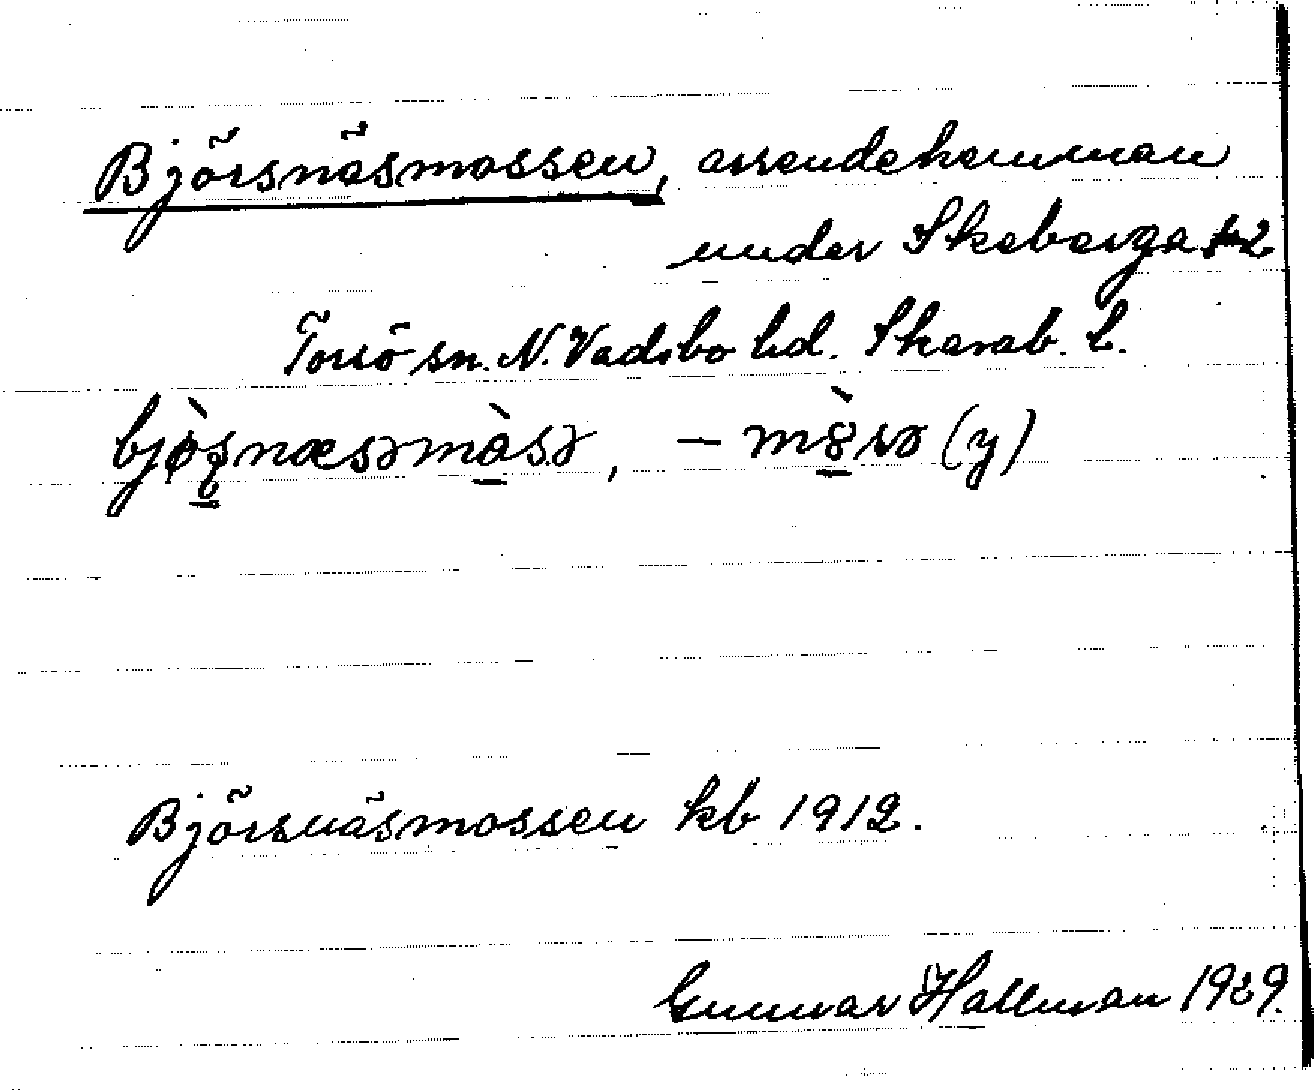 Björsnäsmossen, arrendehemman
under Skeberga 1-2
Torsö sn. N. Vadsbo hd. Skarab. l.
bjø̀ʂnæsəmàsə, – (y)
Björsnäsmossen kb 1912.
Gunnar Hallman 1929.